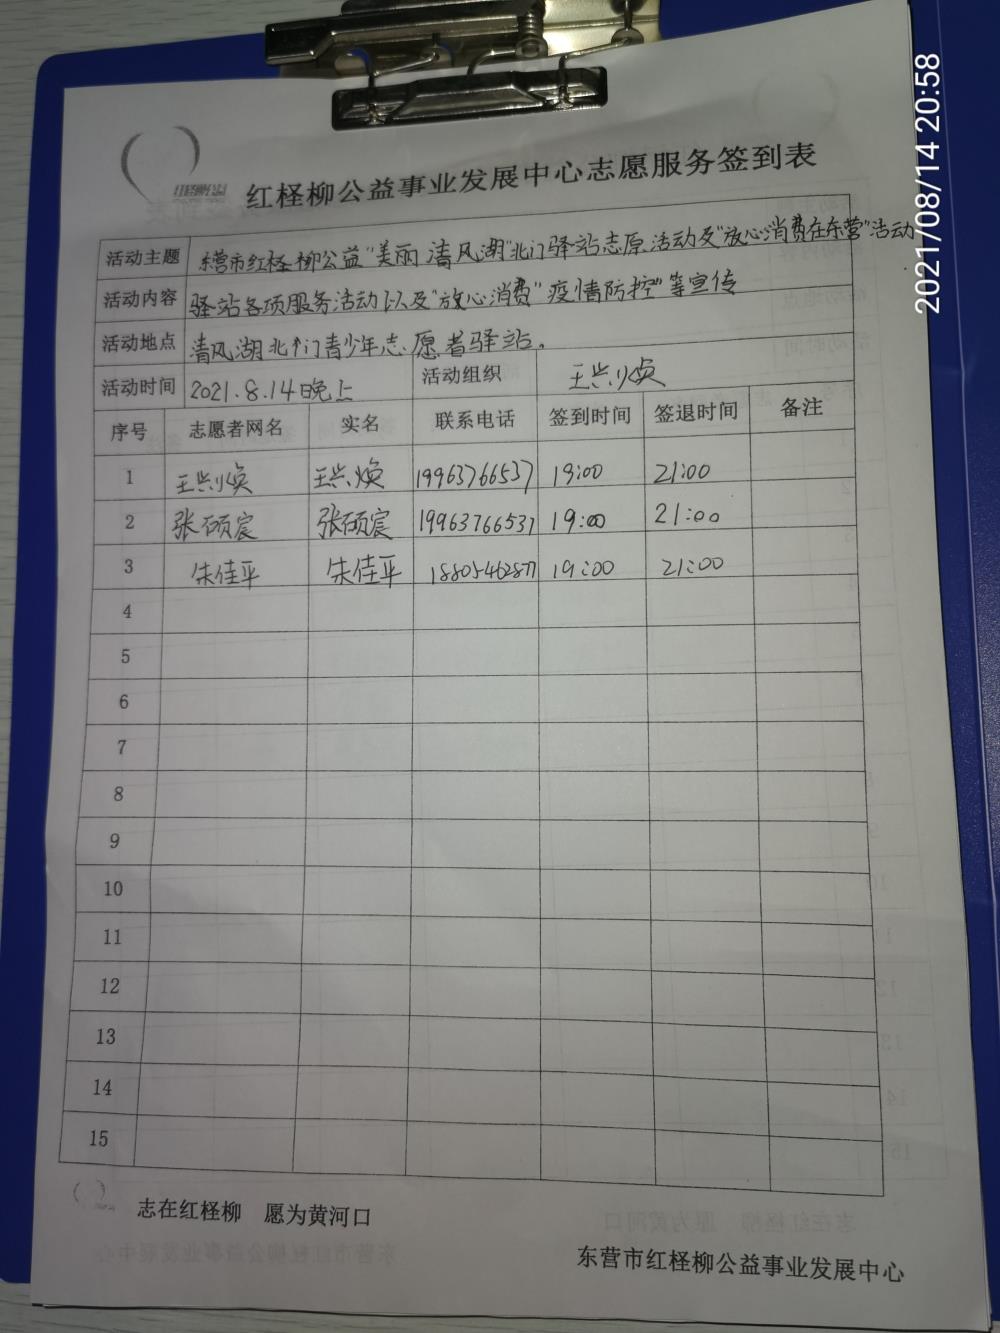 2021/08/14 20:58
红柽柳公益事业发展中心志愿服务签到表
活动主题 东营市红柽柳公益"美丽清风湖"北门驿站志原活动及"放心消费在东营"活动
活动内容 驿站各项服务活动以及"放心消费"疫情防控"等宣传
活动地点 清风湖北门青少年志愿者驿站。
活动时间 2021.8.14日晚上 活动组织 王兴焕
序号 志愿者网名 实名 联系电话 签到时间 签退时间 备注
1 王兴焕 王兴焕 19963766537 19:00 21:00
2 张硕宸 张硕宸 19963766537 19:00 21:00
3 朱佳平 朱佳平 18805462877 19:00 21:00
4
5
6
7
8
9
10
11
12
13
14
15
志在红柽柳 愿为黄河口
东营市红柽柳公益事业发展中心